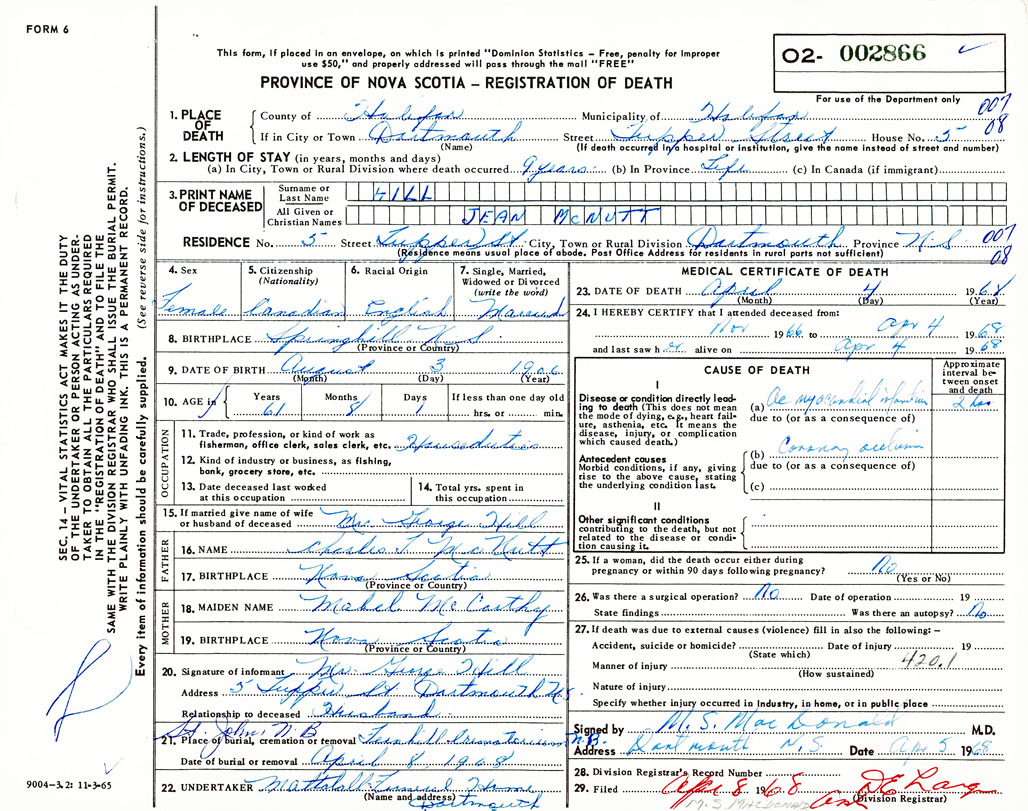 FORM 6
This form, if placed in an envelope, on which is printed "Dominion Statistics – Free, penalty for improper
use $50," and properly addressed will pass through the mail "FREE"
PROVINCE OF NOVA SCOTIA – REGISTRATION OF DEATH
02- 002866 ✓
For use of the Department only
007
08
1. PLACE OF DEATH
County of Halifax Municipality of Halifax
If in City or Town Dartmouth Street Tupper Street House No. 5
(Name) (If death occurred in a hospital or institution, give the name instead of street and number)
2. LENGTH OF STAY (in years, months and days)
(a) In City, Town or Rural Division where death occurred 9 years (b) In Province Life (c) In Canada (if immigrant)
3. PRINT NAME OF DECEASED
Surname or Last Name HILL
All Given or Christian Names JEAN McNUTT
RESIDENCE No. 5 Street Tupper St City, Town or Rural Division Dartmouth Province N.S
(Residence means usual place of abode. Post Office Address for residents in rural parts not sufficient)
007
08
4. Sex
Female
5. Citizenship (Nationality)
Canadian
6. Racial Origin
English
7. Single, Married, Widowed or Divorced (write the word)
Married
8. BIRTHPLACE Springhill N.S.
(Province or Country)
9. DATE OF BIRTH August 3 1906
(Month) (Day) (Year)
10. AGE in
Years 61 Months 8 Days 1 If less than one day old
hrs. or min.
OCCUPATION
11. Trade, profession, or kind of work as fisherman, office clerk, sales clerk, etc. Houseduties
12. Kind of industry or business, as fishing, bank, grocery store, etc.
13. Date deceased last worked at this occupation
14. Total yrs. spent in this occupation
15. If married give name of wife or husband of deceased Mrs. George Hill
FATHER
16. NAME Charles T McNutt
17. BIRTHPLACE Nova Scotia
(Province or Country)
MOTHER
18. MAIDEN NAME Mabel McCarthy
19. BIRTHPLACE Nova Scotia
(Province or Country)
20. Signature of informant Mrs. George Hill
Address 5 Tupper St Dartmouth N.S.
Relationship to deceased Husband
St. John, N.B
21. Place of burial, cremation or removal Fernhill Crematorium N.B.
Date of burial or removal April 8, 1968
22. UNDERTAKER Mattatall Funeral Home
(Name and address) Dartmouth
MEDICAL CERTIFICATE OF DEATH
23. DATE OF DEATH April 4 1968
(Month) (Day) (Year)
24. I HEREBY CERTIFY that I attended deceased from:
Nov 1966 to Apr 4 1968
and last saw her alive on Apr 4 1968
CAUSE OF DEATH
Approximate interval between onset and death
I
Disease or condition directly leading to death (This does not mean the mode of dying, e.g., heart failure, asthenia, etc. It means the disease, injury, or complication which caused death.)
(a) Ac myocardial infarction 2 hrs
due to (or as a consequence of)
Antecedent causes
Morbid conditions, if any, giving rise to the above cause, stating the underlying condition last.
(b) Coronary occlusion
due to (or as a consequence of)
(c)
II
Other significant conditions
contributing to the death, but not related to the disease or condition causing it.
25. If a woman, did the death occur either during pregnancy or within 90 days following pregnancy? No
(Yes or No)
26. Was there a surgical operation? No Date of operation 19
State findings Was there an autopsy? No
27. If death was due to external causes (violence) fill in also the following: –
Accident, suicide or homicide? Date of injury 19
(State which)
Manner of injury 420.1
(How sustained)
Nature of injury
Specify whether injury occurred in industry, in home, or in public place
Signed by M. S. MacDonald M.D.
Address Dartmouth N.S. Date Apr 5 1968
28. Division Registrar's Record Number
29. Filed Apr 8 1968 D E Lang
(Division Registrar)
M.S. MACDONALD
SEC. 14 – VITAL STATISTICS ACT MAKES IT THE DUTY
OF THE UNDERTAKER OR PERSON ACTING AS UNDER-
TAKER TO OBTAIN ALL THE PARTICULARS REQUIRED
IN THE "REGISTRATION OF DEATH" AND TO FILE THE
SAME WITH THE DIVISION REGISTRAR WHO SHALL ISSUE THE BURIAL PERMIT.
WRITE PLAINLY WITH UNFADING INK. THIS IS A PERMANENT RECORD.
Every item of information should be carefully supplied. (See reverse side for instructions.)
9004-3.2: 11-3-65